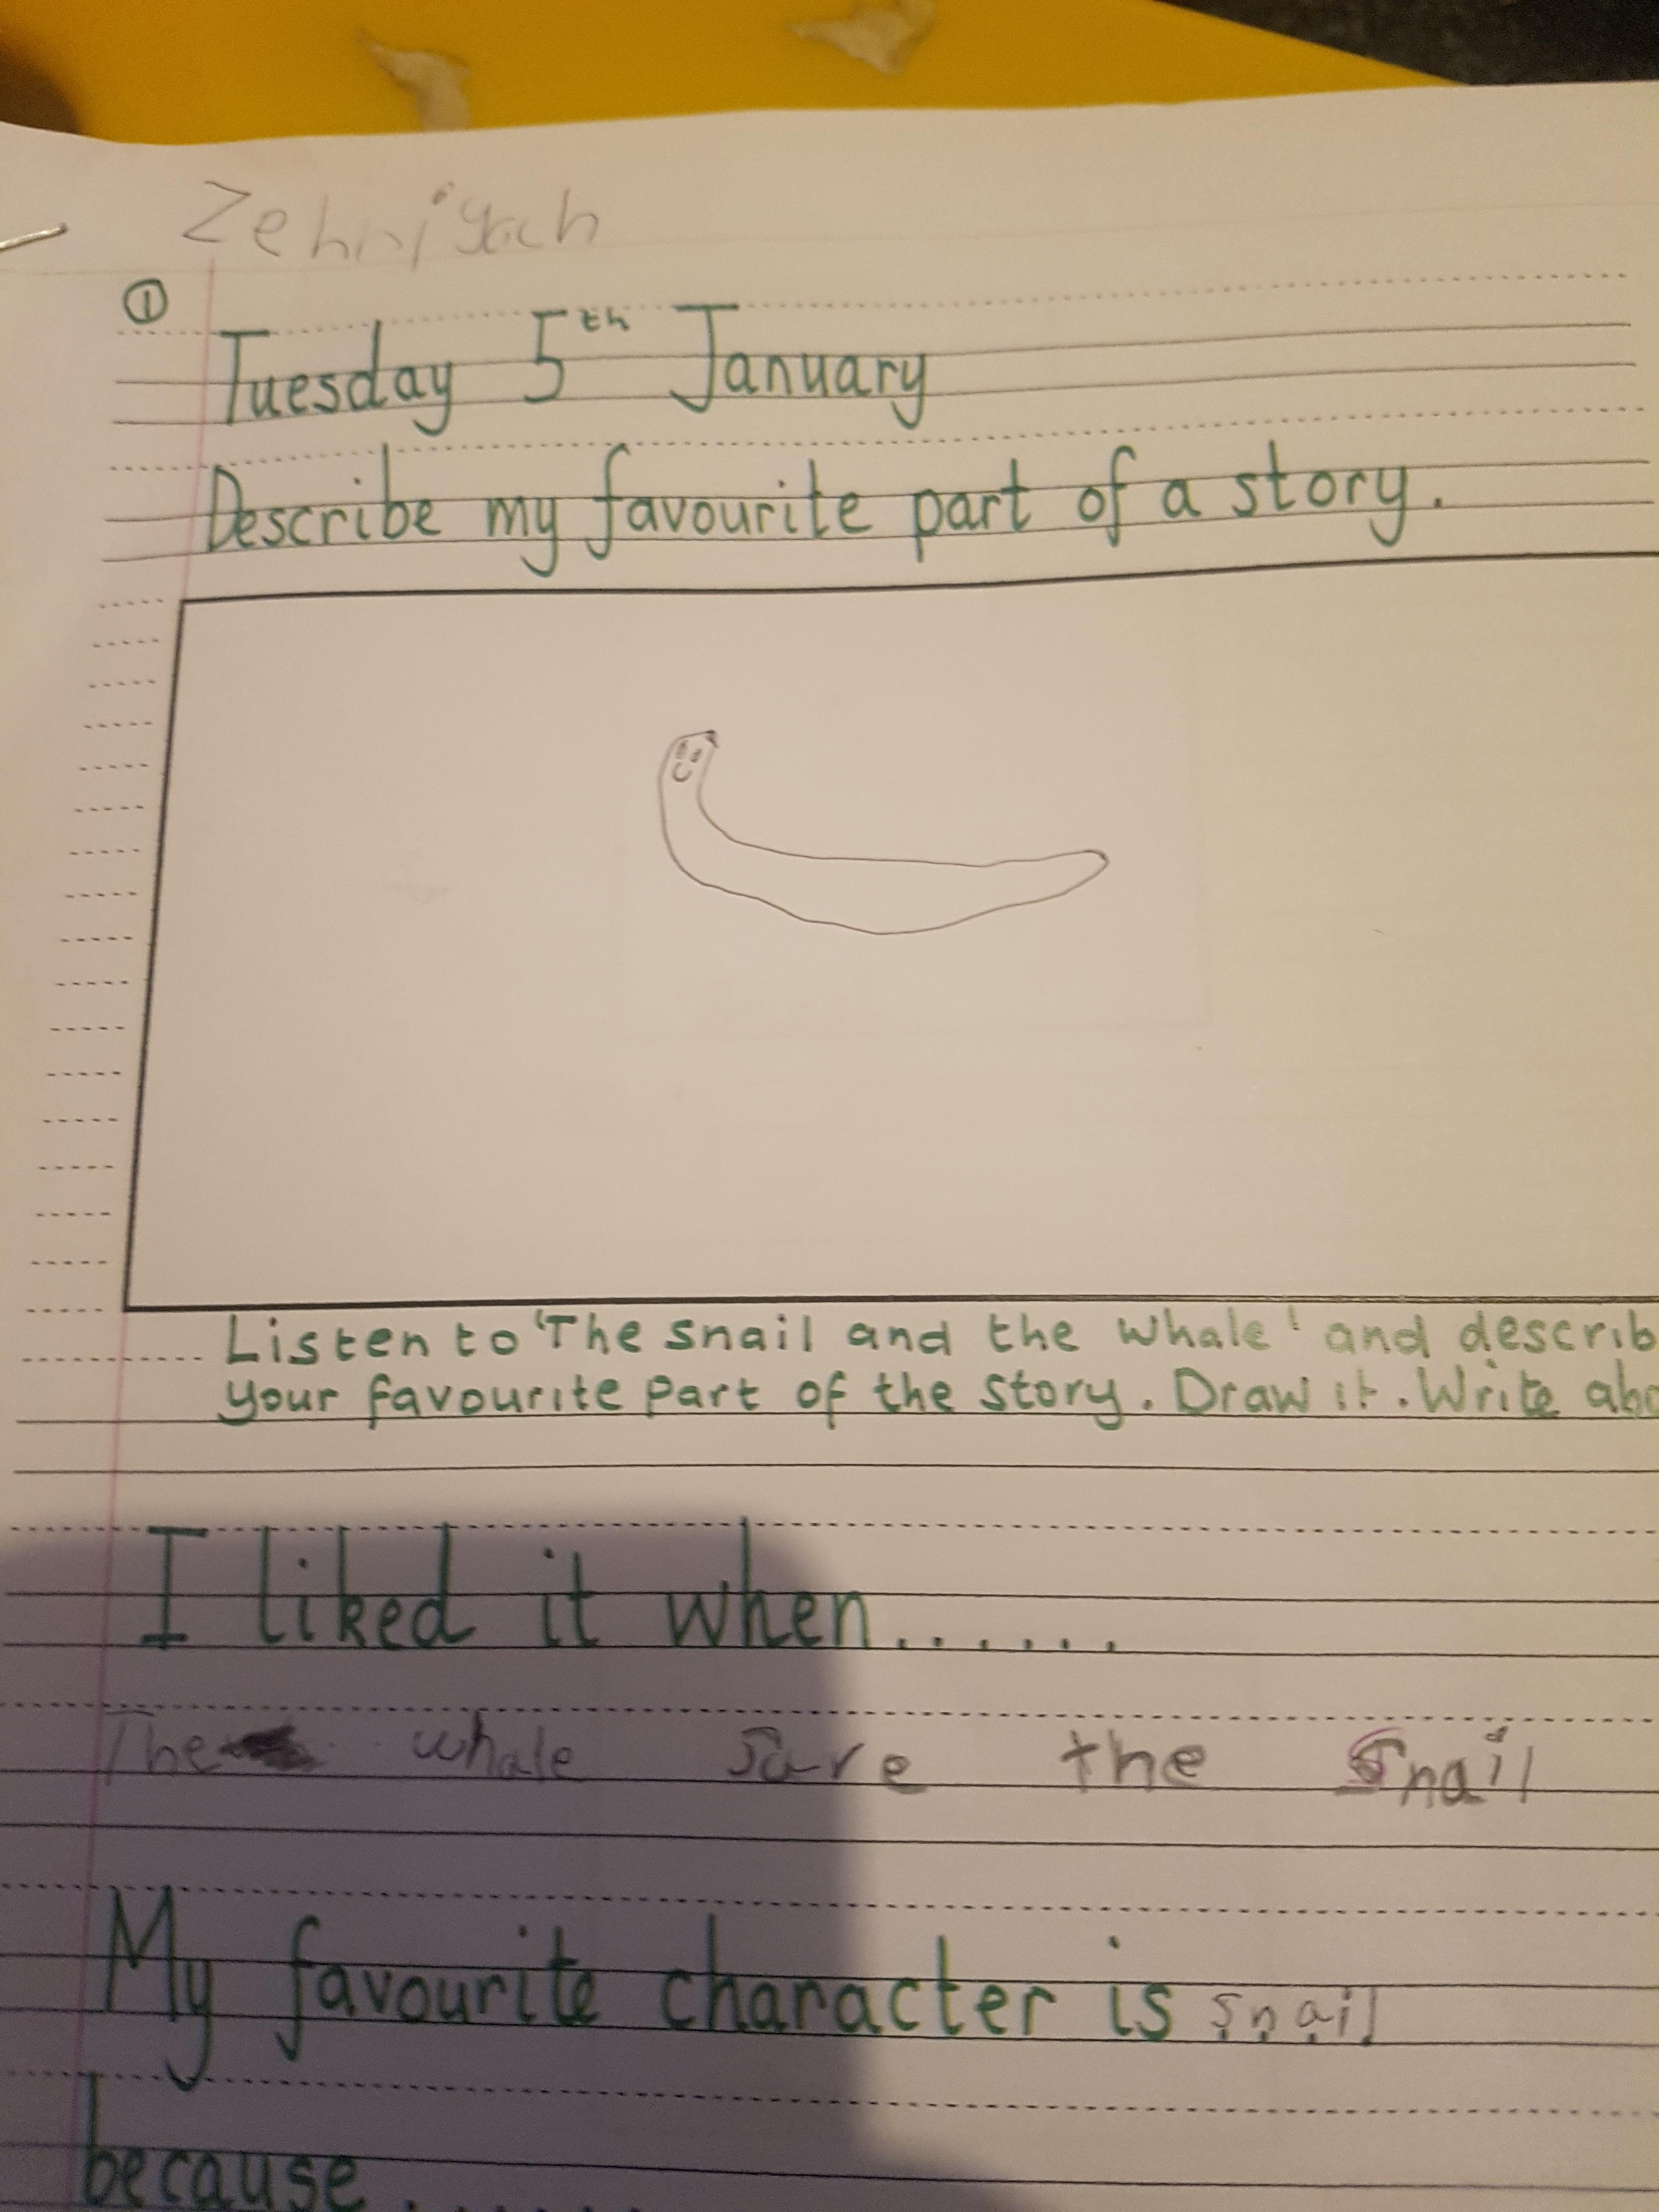 Zehniyah
①
Tuesday 5th January
Describe my favourite part of a story.
Listen to 'The snail and the whale' and describ
your favourite part of the story. Draw it. Write abo
I liked it when.......
The whale save the Snail
My favourite character is snail
because.......